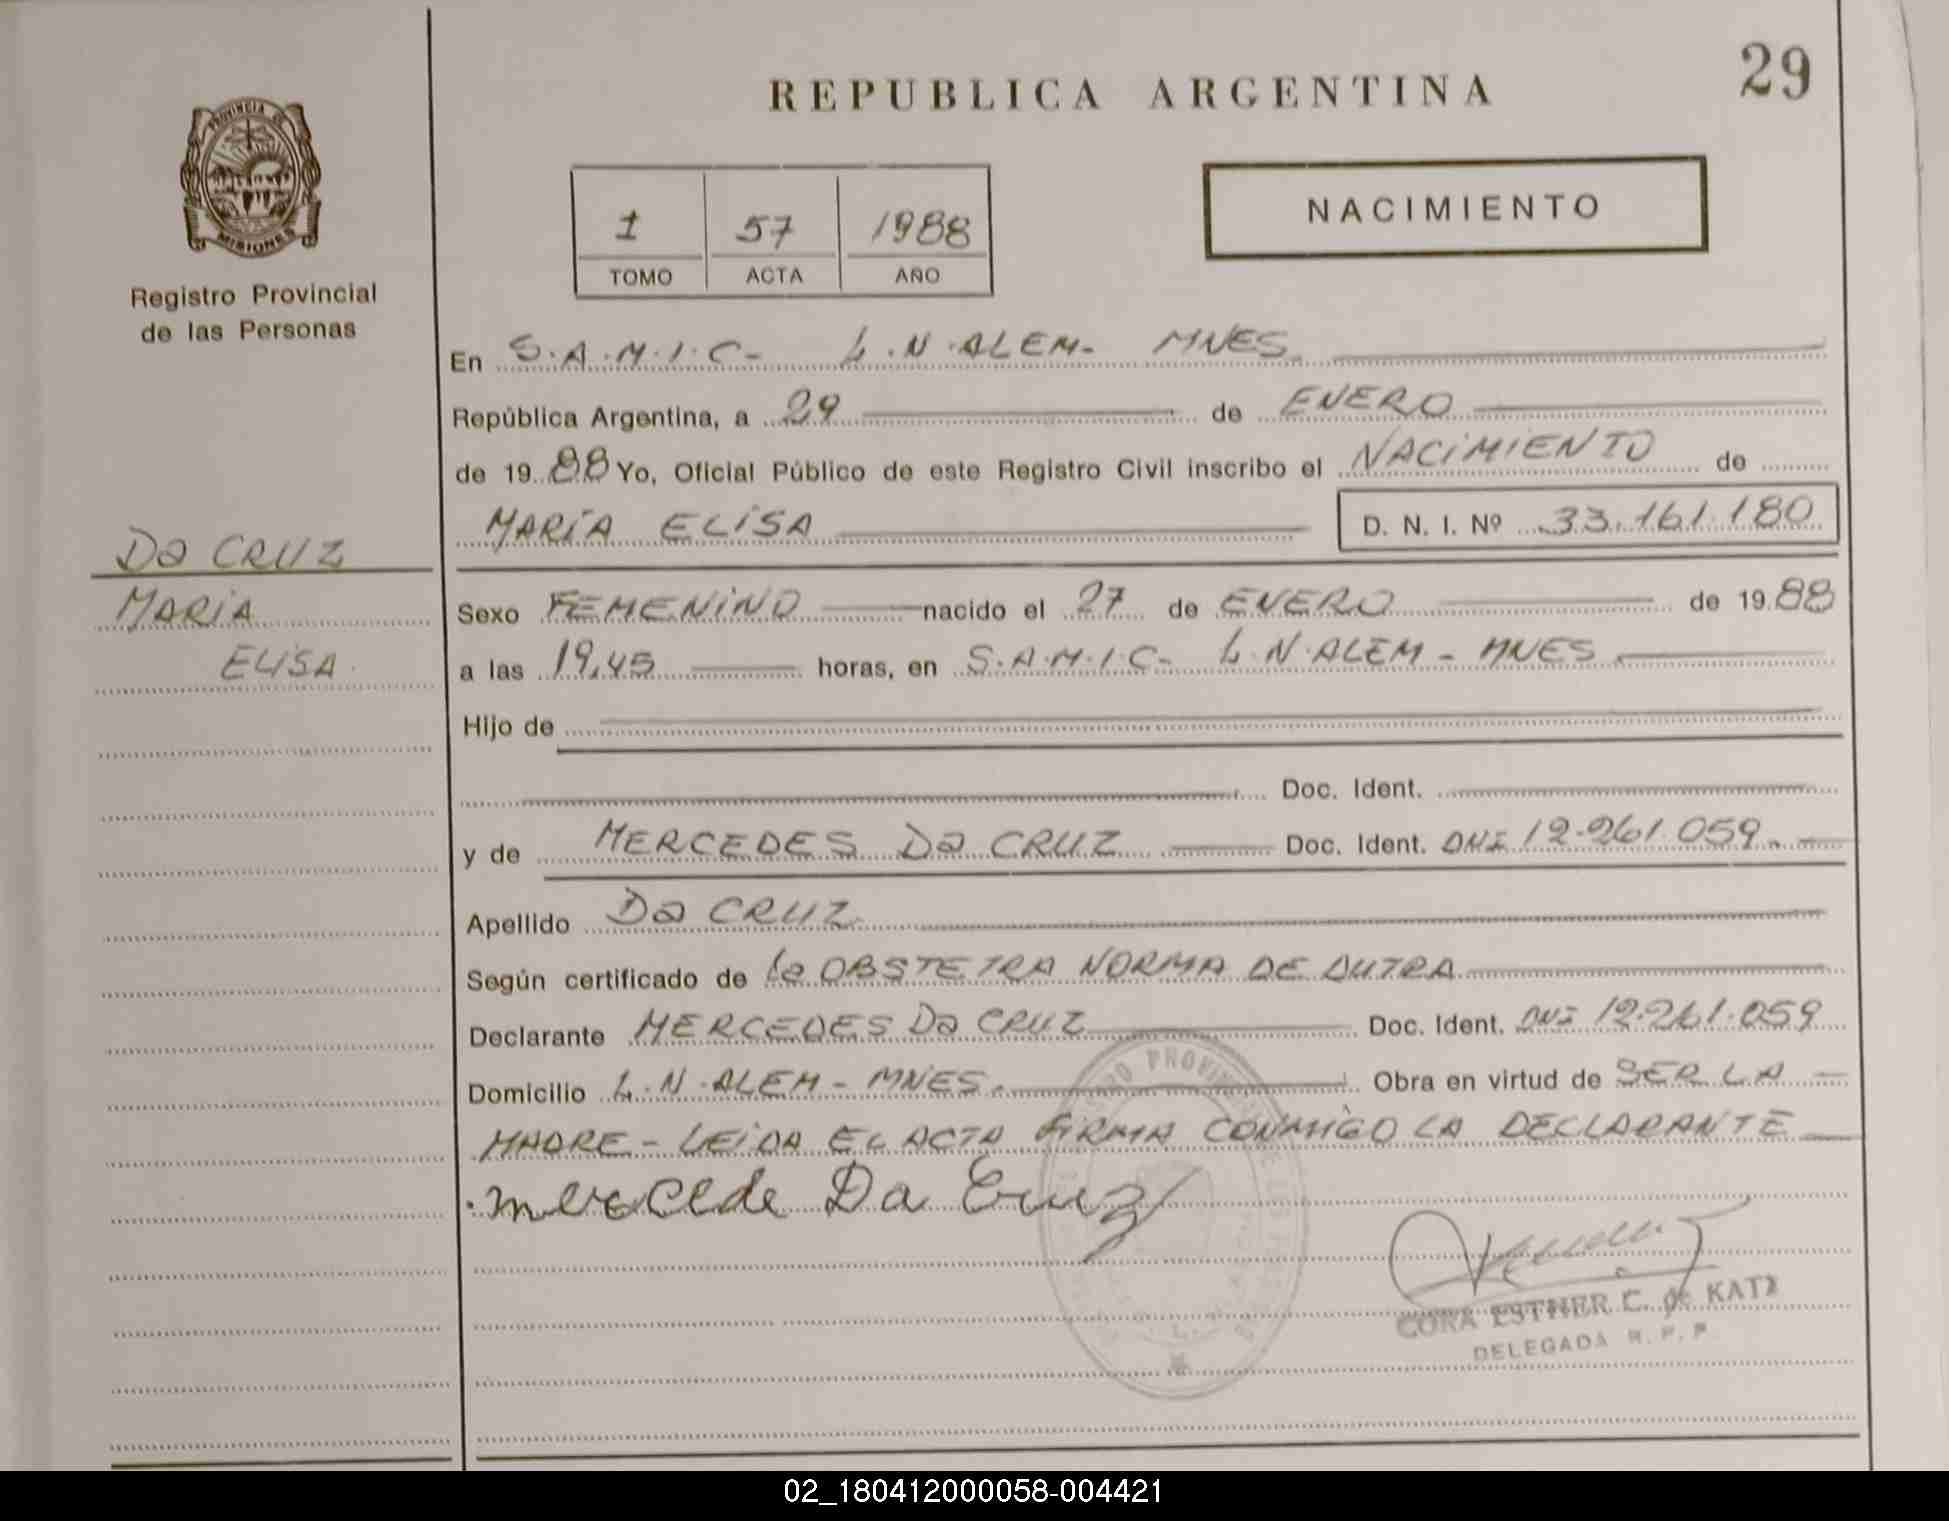 REPUBLICA ARGENTINA
29
PROVINCIA DE
MISIONES
Registro Provincial
de las Personas
1 57 1988
TOMO ACTA AÑO
NACIMIENTO
En S.A.M.I.C- L.N.ALEM- MNES
República Argentina, a 29 de ENERO
de 1988 Yo, Oficial Público de este Registro Civil inscribo el NACIMIENTO de
MARÍA ELISA D. N. I. Nº 33.161.180
Da CRUZ
MARÍA
ELISA
Sexo FEMENINO nacido el 27 de ENERO de 1988
a las 19,45 horas, en S.A.M.I.C- L.N.ALEM - MNES
Hijo de
Doc. Ident.
y de MERCEDES Da CRUZ Doc. Ident. DNI 12.261.059.
Apellido Da CRUZ
Según certificado de la OBSTETRA NORMA DE DUTRA
Declarante MERCEDES Da CRUZ Doc. Ident. DNI 12.261.059
Domicilio L.N.ALEM - MNES. Obra en virtud de SER LA
MADRE - LEIDA EL ACTA FIRMA CONMIGO LA DECLARANTE
mercede Da Cruz
CORA ESTHER C. de KATZ
DELEGADA R. P. P.
02_180412000058-004421